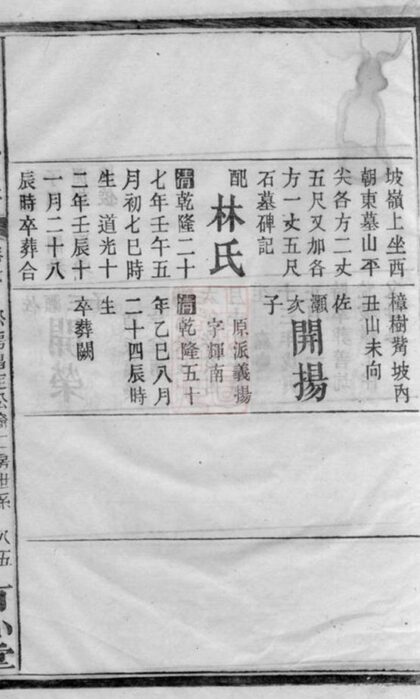 坡嶺上坐西
朝東墓山平
尖各方二丈
五尺又加各
方一丈五尺
石墓碑記
配
林氏
清乾隆二十
七年壬午五
月初七巳時
生 道光十
二年壬辰十
一月二十八
辰時卒葬合
樟樹觜坡內
丑山未向
佐
灝
次
子
開揚
原派義揚
字輝南
清乾隆五十
年乙巳八月
二十四辰時
生
卒葬闕
八五